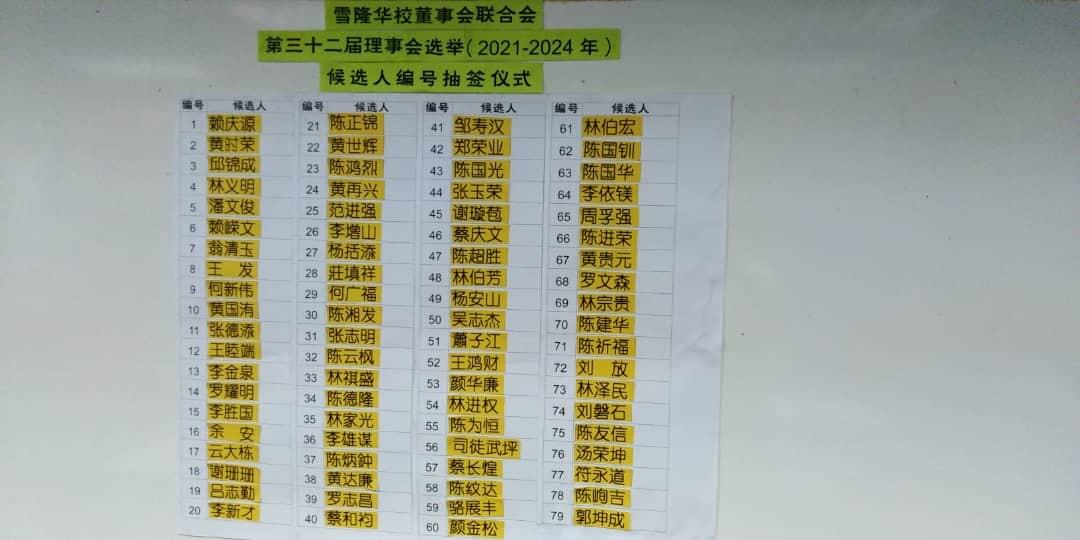 雪隆华校董事会联合会
第三十二届理事会选举（2021-2024 年）
候选人编号抽签仪式
编号 候选人
1 赖庆源
2 黄时荣
3 邱锦成
4 林义明
5 潘文俊
6 赖嵘文
7 翁清玉
8 王 发
9 何新伟
10 黄国洧
11 张德添
12 王睦端
13 李金泉
14 罗耀明
15 李胜国
16 余 安
17 云大栋
18 谢珊珊
19 吕志勤
20 李新才
编号 候选人
21 陈正锦
22 黄世辉
23 陈鸿烈
24 黄再兴
25 范进强
26 李增山
27 杨括添
28 莊填祥
29 何广福
30 陈湘发
31 张志明
32 陈云枫
33 林祺盛
34 陈德隆
35 林家光
36 李雄谋
37 陈炳鈡
38 黄达廉
39 罗志昌
40 蔡和礿
编号 候选人
41 邹寿汉
42 郑荣业
43 陈国光
44 张玉荣
45 谢璇苞
46 蔡庆文
47 陈超胜
48 林伯芳
49 杨安山
50 吴志杰
51 蕭子江
52 王鸿财
53 颜华廉
54 林进权
55 陈为恒
56 司徒武坪
57 蔡长煌
58 陈纹达
59 骆展丰
60 颜金松
编号 候选人
61 林伯宏
62 陈国钏
63 陈国华
64 李依镁
65 周孚强
66 陈进荣
67 黄贵元
68 罗文森
69 林宗贵
70 陈建华
71 陈祈福
72 刘 放
73 林泽民
74 刘磐石
75 陈友信
76 汤荣坤
77 符永道
78 陈峋吉
79 郭坤成